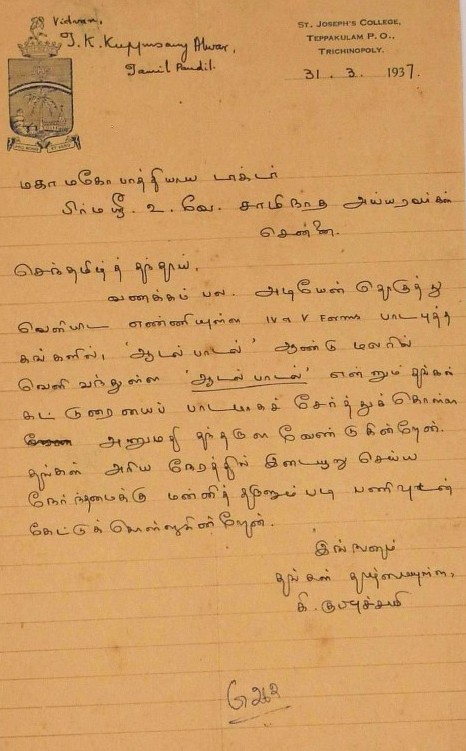 Vidwan,
T. K. Kuppusamy Alwar,
Tamil Pandit.
ST. JOSEPH'S COLLEGE,
TEPPAKULAM P. O.,
TRICHINOPOLY.
31. 3. 1937.
மகா மகோ பாத்தியாய டாக்டர்
பிரம ஸ்ரீ உ. வே. சாமிநாத அய்யரவர்கள்
சென்னை.
செந்தமிழ்த் தந்தாய்,
வணக்கம் பல. அடியேன் தொகுத்து
வெளியிட எண்ணியுள்ள IV & V Forms பாடபுத்த
கங்களில், 'ஆடல் பாடல்' ஆண்டு மலரில்
வெளி வந்துள்ள 'ஆடல் பாடல்' என்னும் தங்கள்
கட்டுரையைப் பாடமாகச் சேர்த்துக்கொள்ள
அனுமதி தந்தருள வேண்டுகின்றேன்.
தங்கள் அரிய நேரத்தில் இடையூறு செய்ய
நேர்ந்தமைக்கு மன்னித்தருளும்படி பணிவுடன்
கேட்டுக் கொள்ளுகின்றேன்.
இங்ஙனம்
தங்கள்